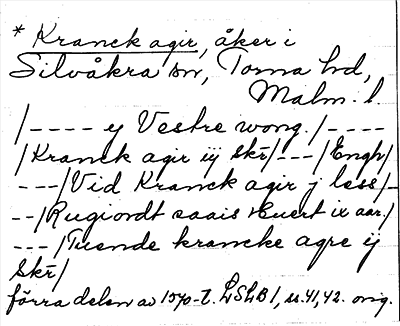 * Kranck agir, åker i
Silvåkra sn, Torna hd,
Malm. l.
/---- ij Vestre wong. /----
/Kranck agir iij skr/---/Engh/
---/Vid Kranck agir j less/-
--/Rugiordt saais huert ix aar./
---/Tuende krancke agre ij
skr/
förra delen av 1570-t. LSLB 1, ss. 41, 42. orig.